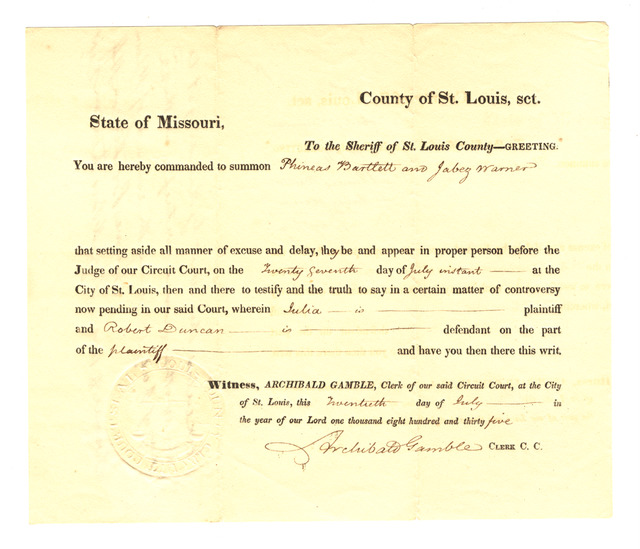 County of St. Louis, sct.
State of Missouri,
To the Sheriff of St. Louis County—GREETING.
You are hereby commanded to summon Phineas Bartlett and Jabez Warner
that setting aside all manner of excuse and delay, they be and appear in proper person before the
Judge of our Circuit Court, on the Twenty Seventh day of July instant — at the
City of St. Louis, then and there to testify and the truth to say in a certain matter of controversy
now pending in our said Court, wherein Julia — is — plaintiff
and Robert Duncan — is — defendant on the part
of the plaintiff — and have you then there this writ.
Witness, ARCHIBALD GAMBLE, Clerk of our said Circuit Court, at the City
of St. Louis, this Twentieth day of July — in
the year of our Lord one thousand eight hundred and thirty five
Archibald Gamble CLERK C. C.